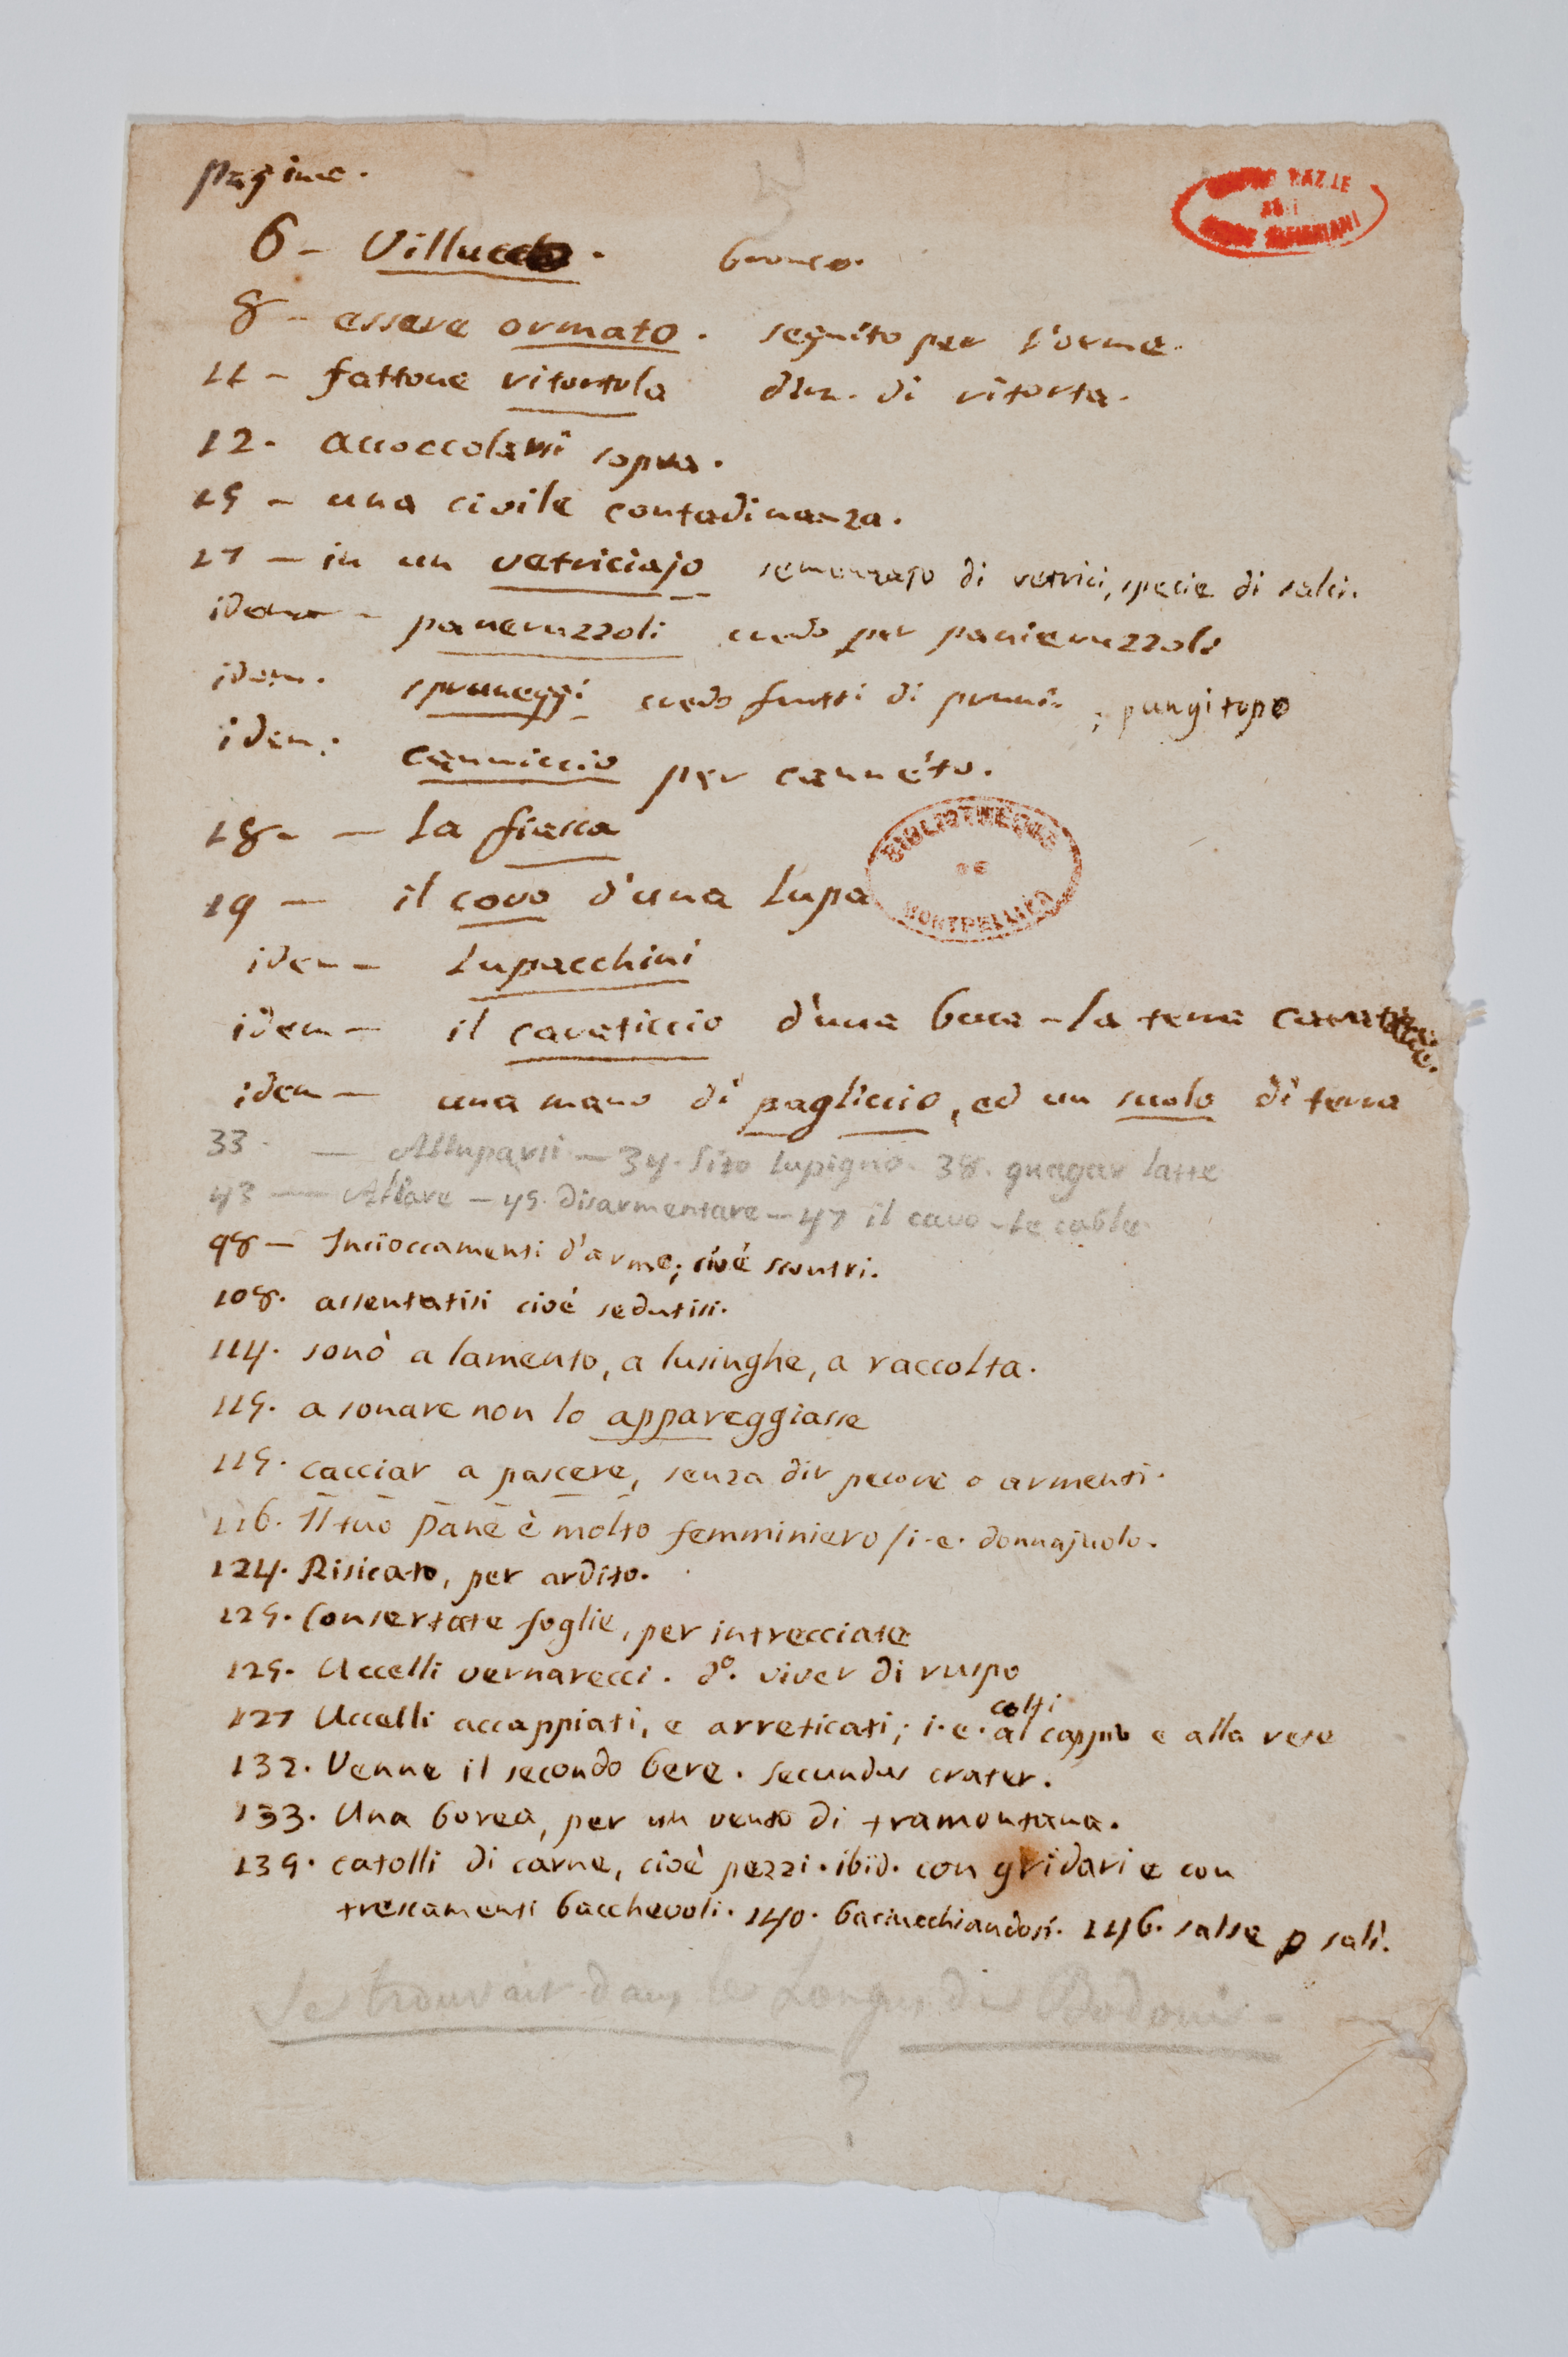 pagine.
6 - Villucchi. bronco.
8 - essere ormato. seguito per l'orme.
11 - fattone ritortola dim. di ritorta.
12. accoccolarsi sopra.
15 - una civile contadinanza.
17 - in un vetriciajo semenzajo di vetrici, specie di salci.
idem - paneruzzoli credo per panieruzzoli
idem. spruneggi credo frutti di pruni. ; pungitopo
idem. canniccio per cannéto.
18. - la fiasca
19 - il covo d'una lupa
BIBLIOTHEQUE DE MONTPELLIER
idem - lupacchini
idem - il cavaticcio d'una buca - la terra
idem - una mano di pagliccio, ed un suolo di terra
33. - Alluparsi - 34. Sito lupigno. 38. quagar latte
43 - Allare - 45. disarmentare - 47 il cavo - le cable
98 - Incioccamenti d'arme; cioé scontri.
108. assentatisi cioé sedutisi.
114. sonò a lamento, a lusinghe, a raccolta.
115. a sonare non lo appareggiasse
115. cacciar a pascere, senza dir pecore o armenti.
116. Il tuo pane è molto femminiero / i.e. donnajuolo.
124. Risicato, per ardito.
125. Consertate foglie, per intrecciate
125. Uccelli vernarecci. d°. viver di ruspo
colti
127 Uccelli accappiati, e arreticati; i.e. al cappio e alla rete
132. Venne il secondo bere. secundus crater.
133. Una borea, per un vento di tramontana.
139. catolli di carne, cioè pezzi. ibid. con gridari e con
trescamenti bacchevoli. 140. baciucchiandosi. 146. salse p salì.
Se trouvait dans le Longus de Bodoni -
?